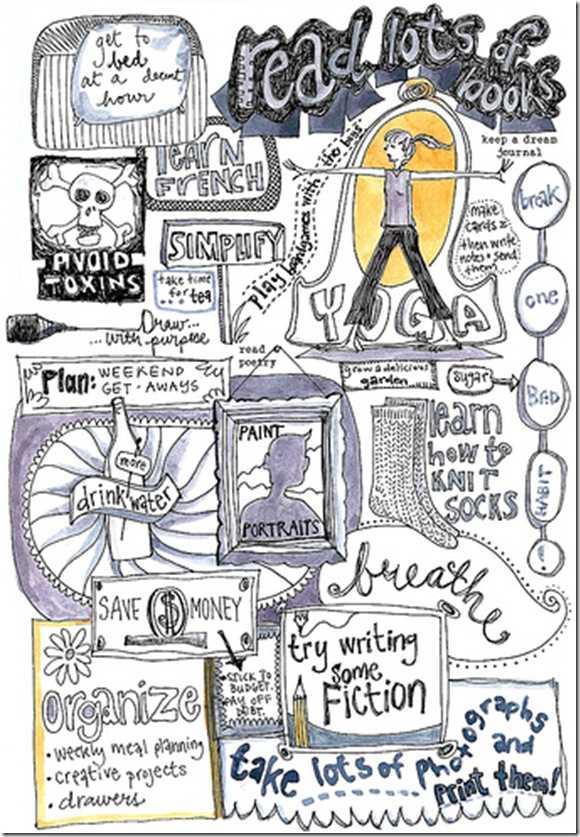 get to
bed
at a decent
hour
read lots of
books
LEARN
FRENCH
keep a dream
journal
AVOID
TOXINS
SIMPLIFY
take time
for tea
play boardgames with "the boys"
YOGA
make
cards &
then write
notes & send
them
break
one
BAD
HABIT
Draw...
...with purpose
read
poetry
Plan: WEEKEND
GET-AWAYS
grow a delicious
garden
sugar
PAINT
PORTRAITS
learn
how to
KNIT
SOCKS
more
drink water
breathe
SAVE $ MONEY
• STICK TO
BUDGET.
PAY OFF
DEBT.
try writing
some
Fiction
organize
• weekly meal planning
• creative projects
• drawers
take lots of photographs
and
print them!